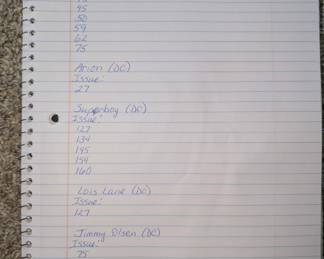 45
50
59
62
75
Arion (DC)
Issue:
27
Superboy (DC)
Issue:
127
134
145
154
160
Lois Lane (DC)
Issue:
127
Jimmy Olsen (DC)
Issue:
75